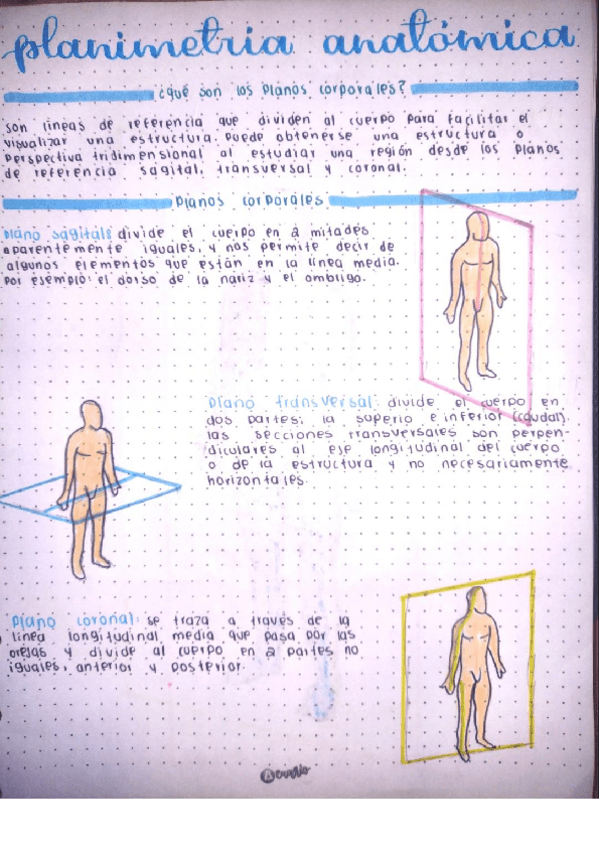 planimetria anatómica
¿qué son los planos corporales?
son lineas de referencia que dividen al cuerpo para facilitar el
visualizar una estructura. Puede obtenerse una estructura o
perspectiva tridimensional al estudiar una región desde los planos
de referencia sagital, transversal y coronal.
Planos corporales
plano sagital: divide el cuerpo en 2 mitades
aparentemente iguales, y nos permite decir de
algunos elementos que están en la linea media.
Por ejemplo: el dorso de la nariz y el ombligo.
plano transversal: divide el cuerpo en
dos partes; la superio e inferior (caudal).
las secciones transversales son perpen-
diculares al eje longitudinal del cuerpo
o de la estructura y no necesariamente
horizontales.
plano coronal: se traza a través de la
linea longitudinal media que pasa por las
orejas y divide al cuerpo en 2 partes no
iguales, anterior y posterior.